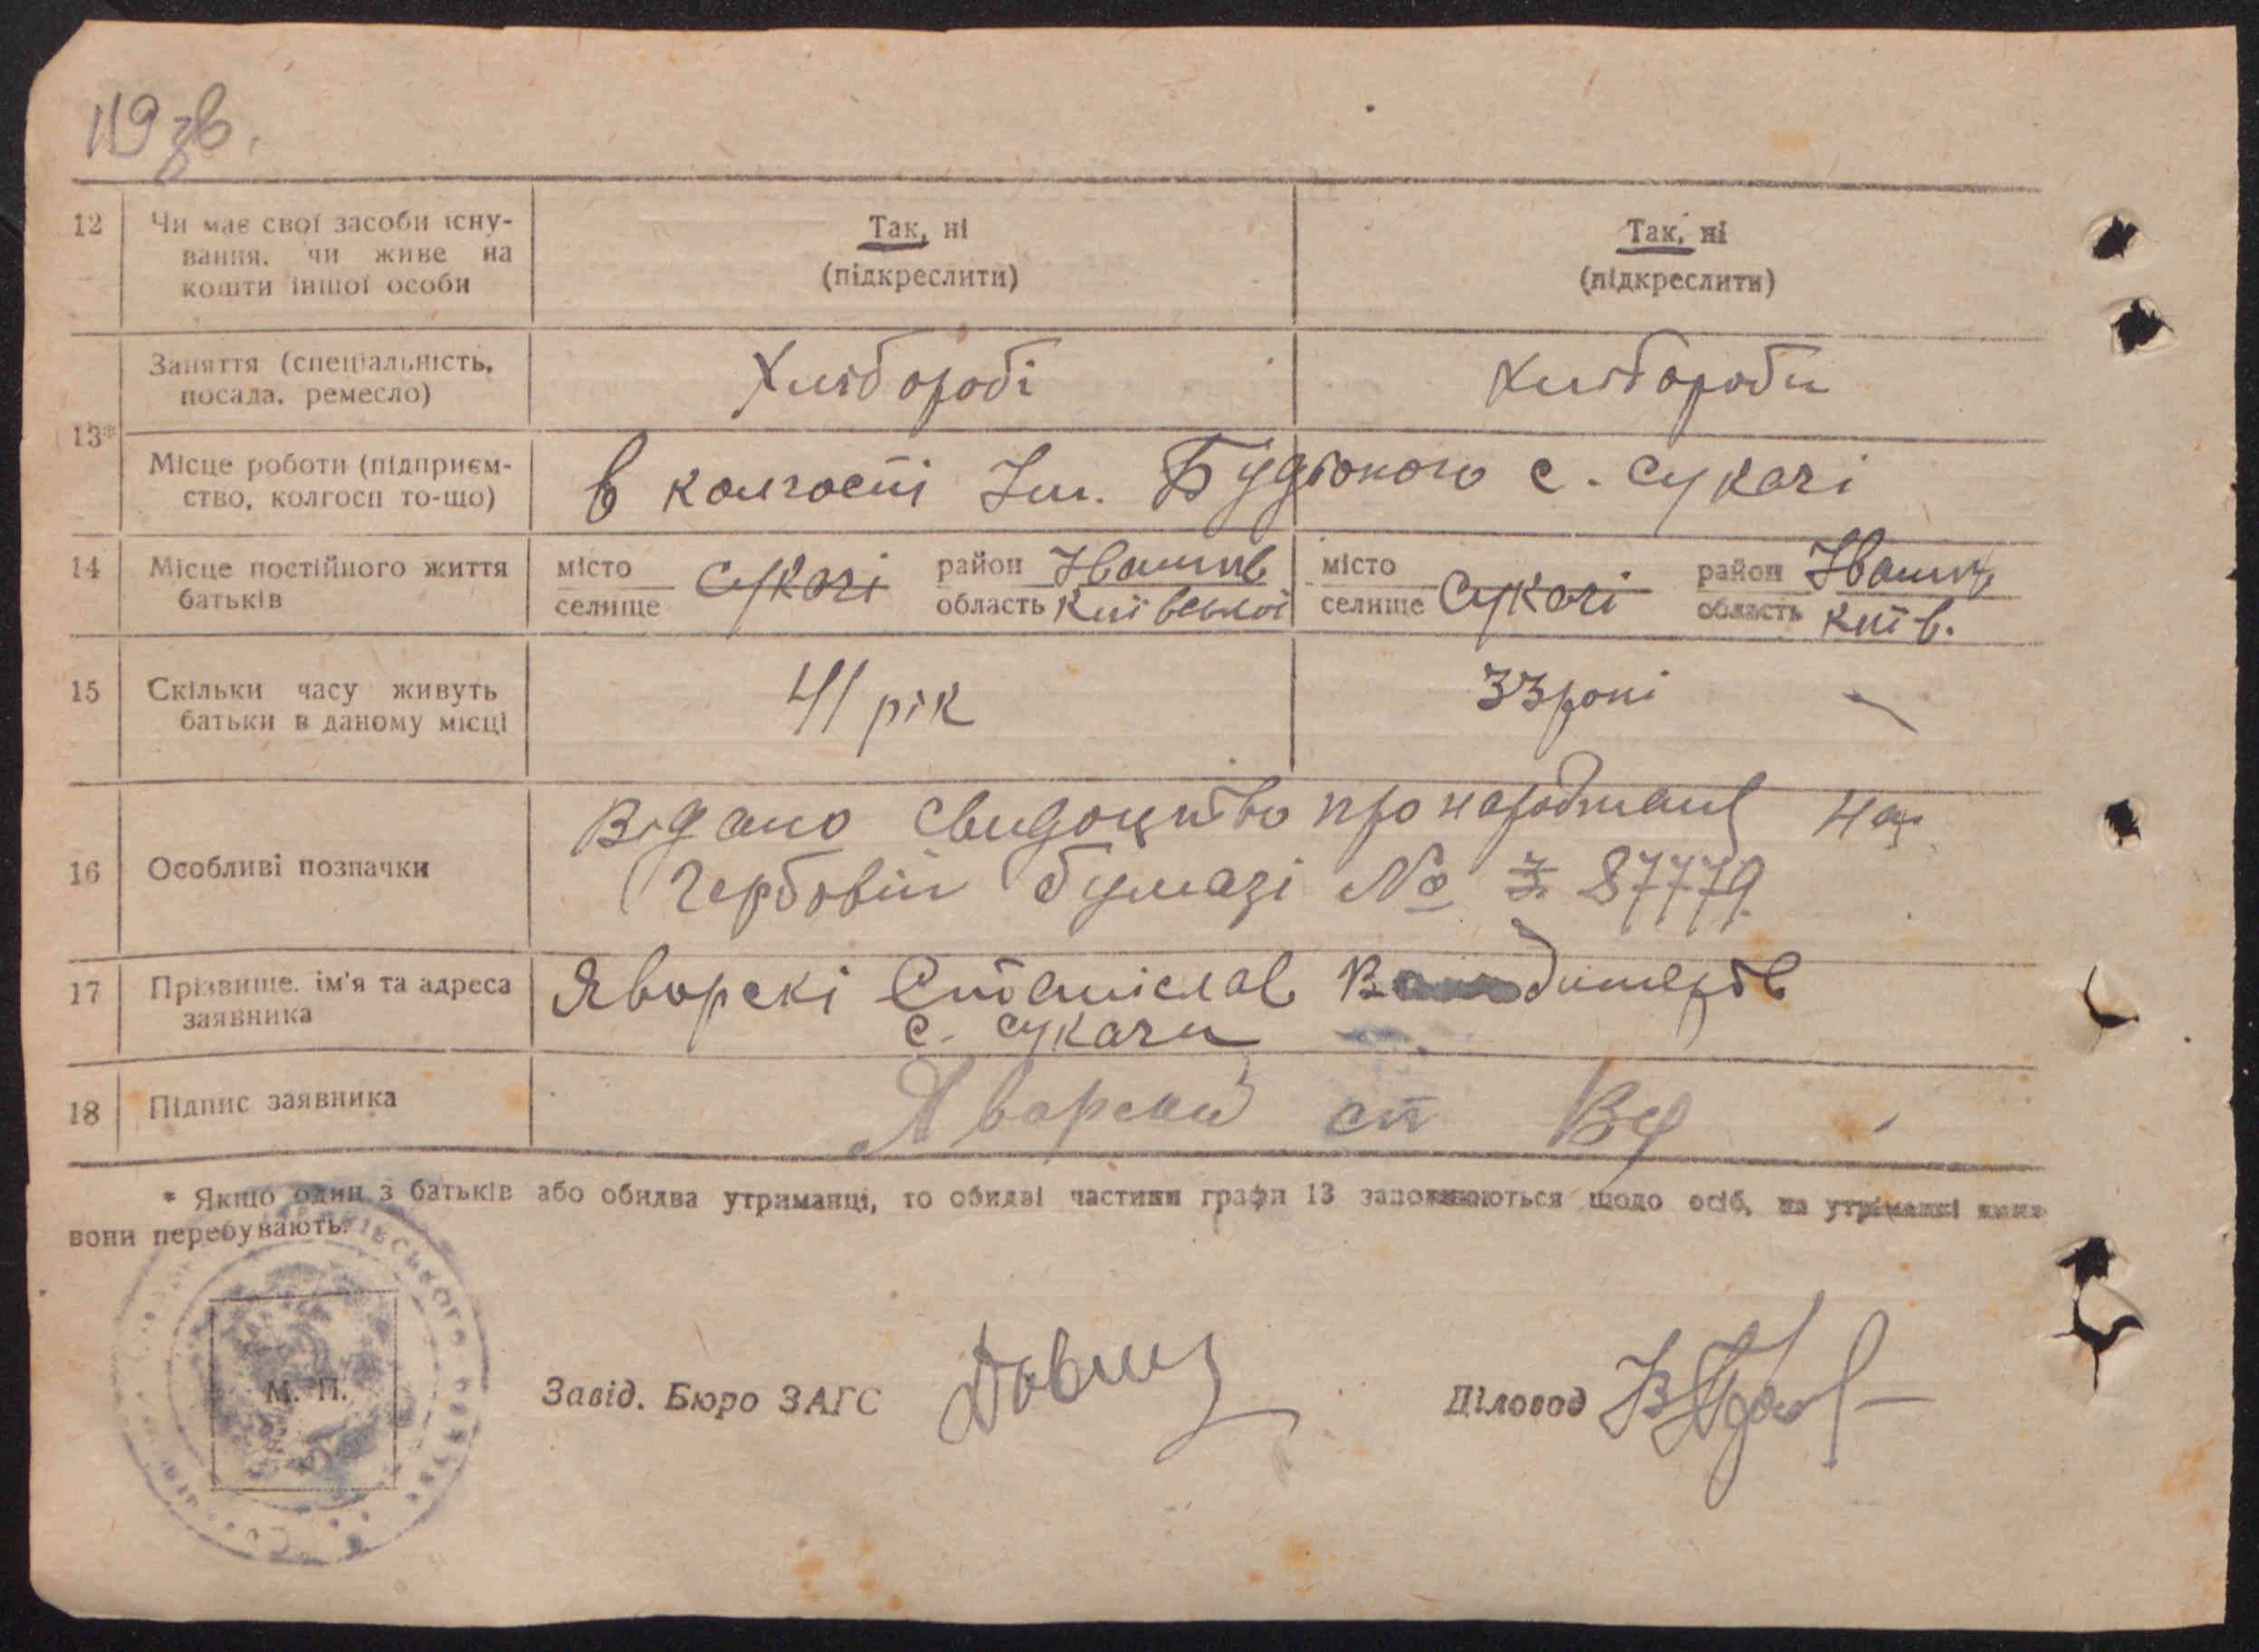 119 зв.
12 Чи має свої засоби існу-
вання, чи живе на
кошти іншої особи
Так, ні
(підкреслити)
Так, ні
(підкреслити)
13*
Заняття (спеціальність,
посада, ремесло)
Хліборобі
Хлібороби
Місце роботи (підприєм-
ство, колгосп то-що)
в колгоспі Ім. Будьоного с. Сукачі
14 Місце постійного життя
батьків
місто
селище
Сукачі
район Іванків
область Київської
місто
селище
Сукачі
район Іванк
область Київ.
15 Скільки часу живуть
батьки в даному місці
41 рік
33 роки
16 Особливі позначки
Видано свидоцтво про народження на
гербовій бумазі № 87779
17 Прізвище, ім'я та адреса
заявника
Яворскі Станіслав
с. Сукачи
18 Підпис заявника
Яворский ст Вл
* Якщо один з батьків або обидва утриманці, то обидві частини графи 13 заповнюються щодо осіб, на утриманні яких
вони перебувають.
М. П.
Завід. Бюро ЗАГС
Діловод